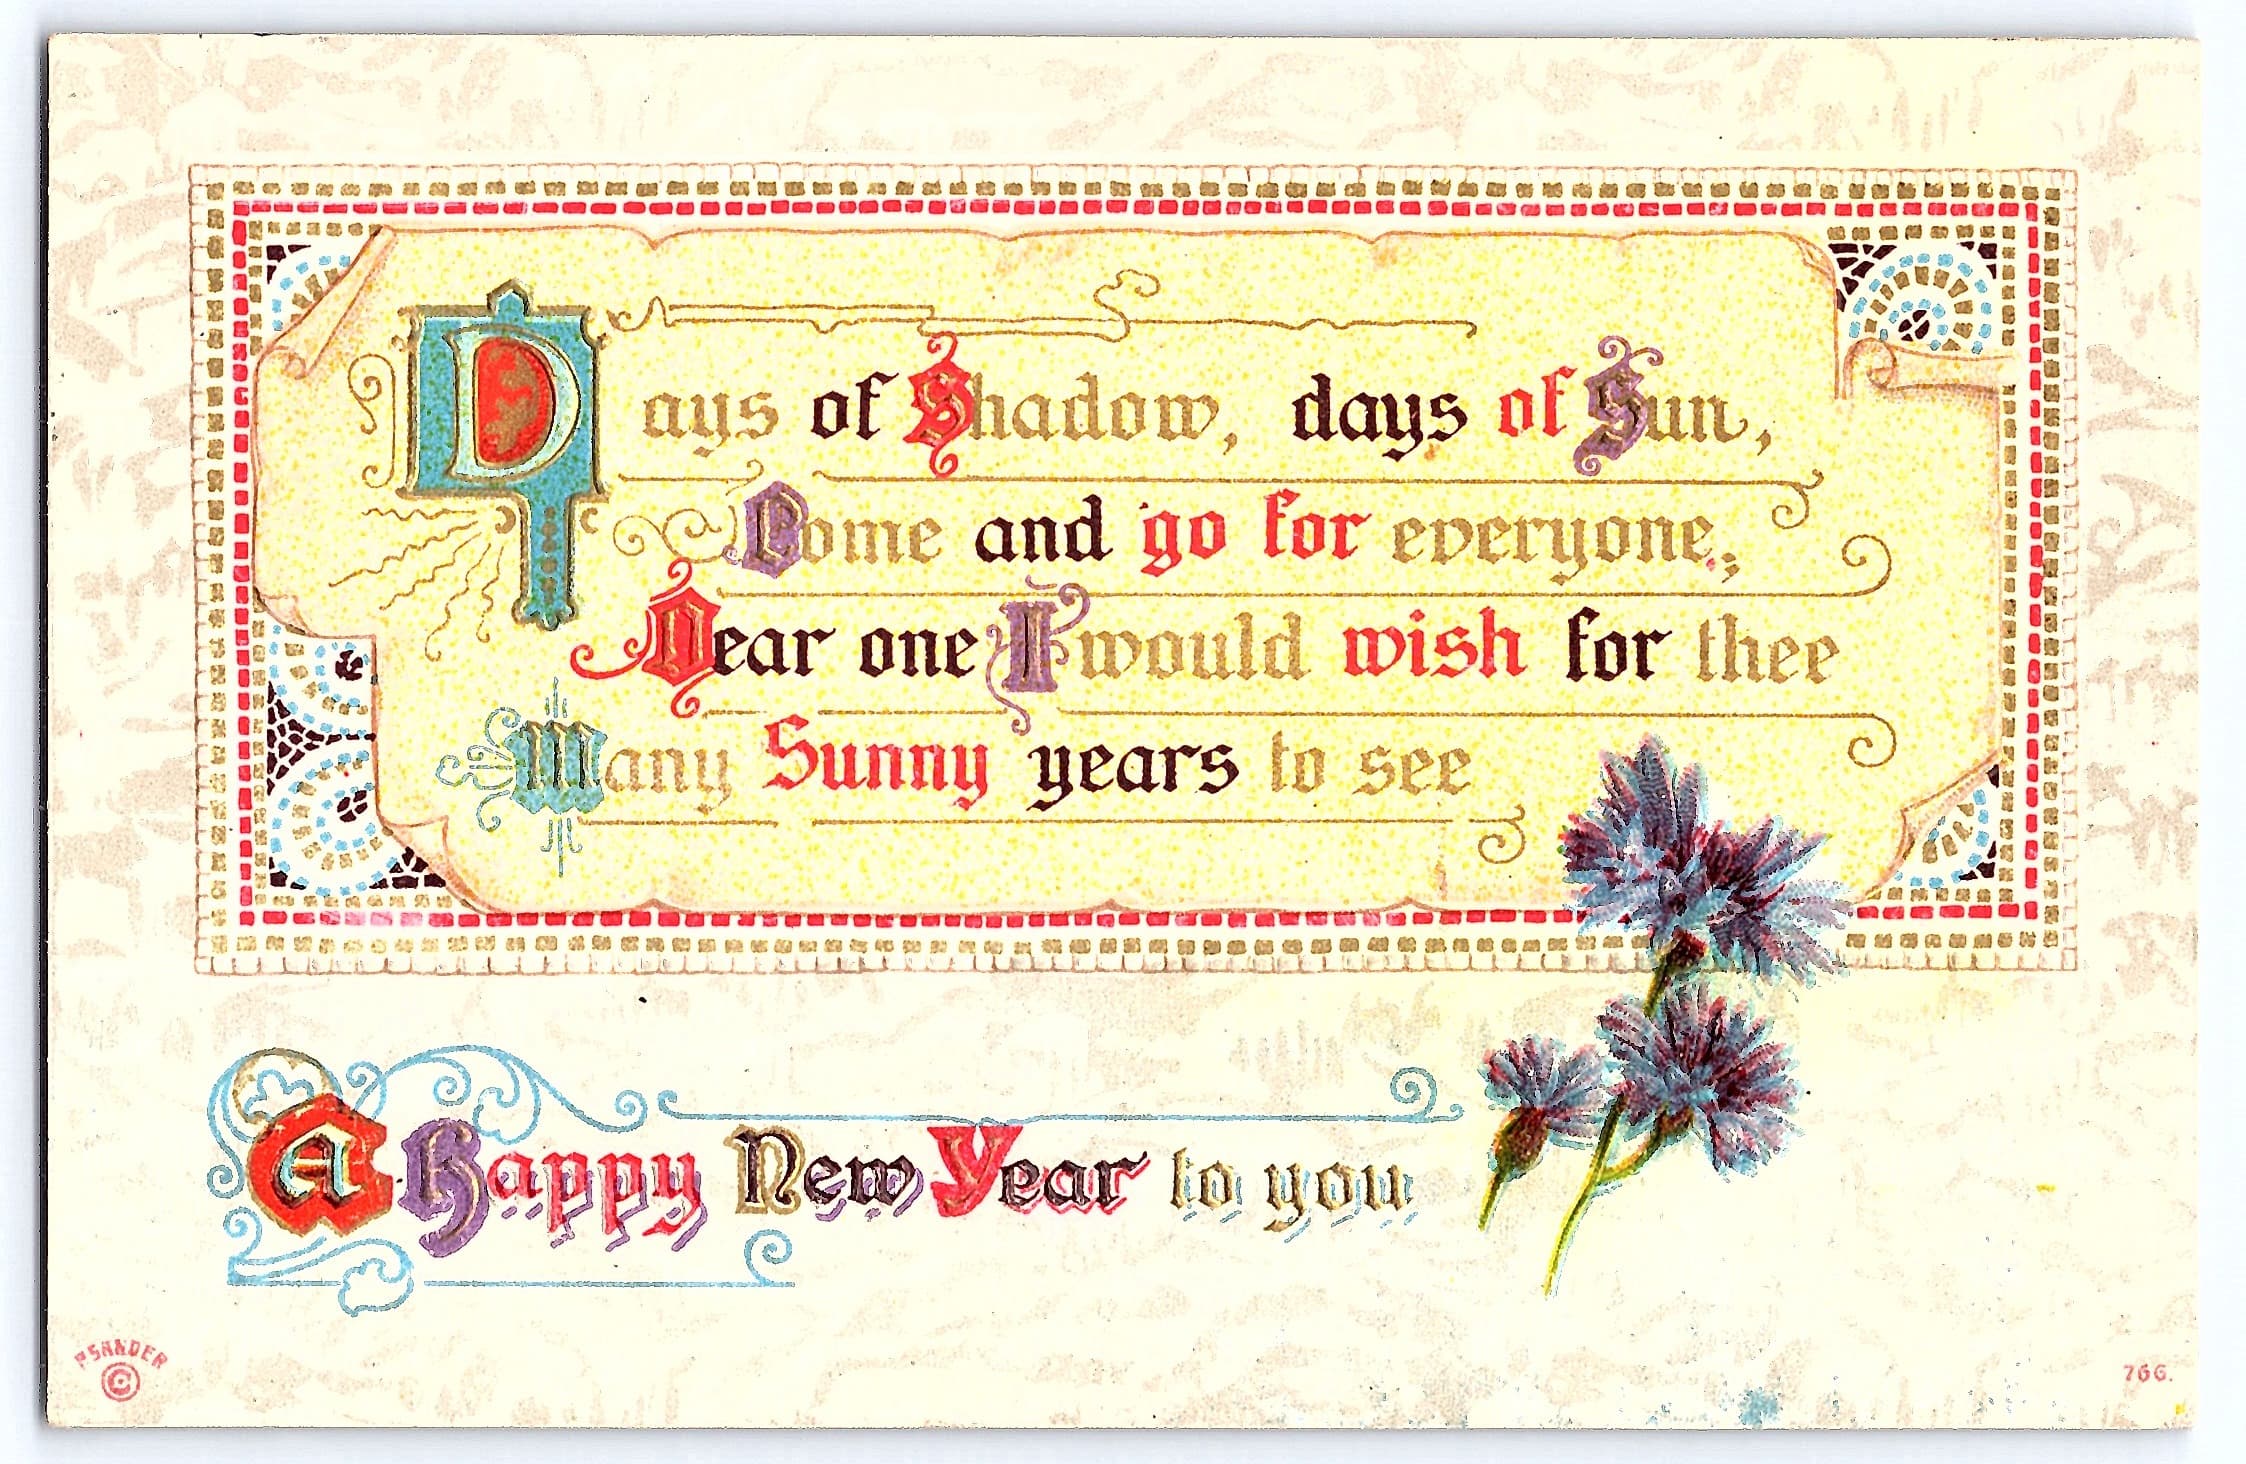 Days of Shadow, days of Sun,
Come and go for everyone,
Dear one I would wish for thee
Many Sunny years to see
A Happy New Year to you
P. SANDER
©
766.